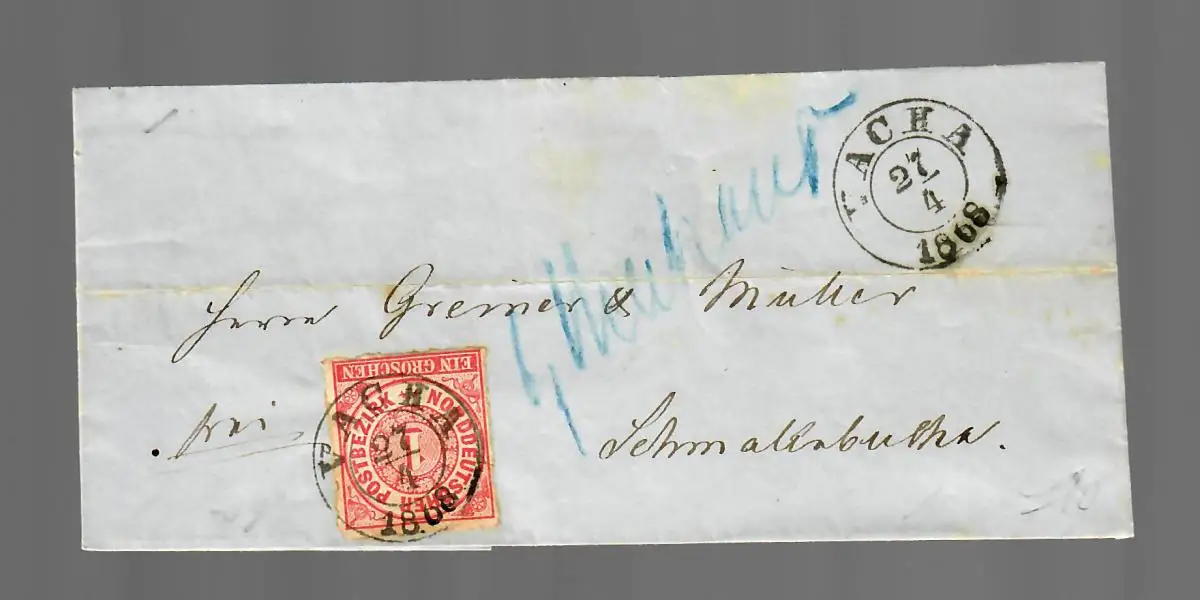 VACHA
27/4
1868
Herrn Greiner & Müller
frei
Schmalenbuche.
EIN GROSCHEN
NORDDEUTSCHER POSTBEZIRK
1
VACHA
27/4
1868